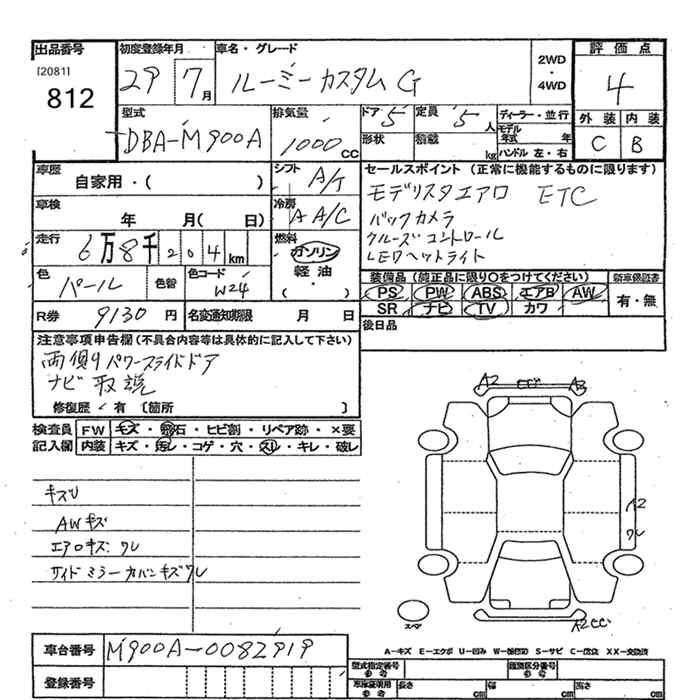 出品番号 初度登録年月 車名・グレード 評価点
[2081] 812 29 7月 ルーミーカスタムG 2WD・4WD 4
型式 排気量 ドア 5 定員 5人 ディーラー・並行 外装 内装
DBA-M900A 1000cc 形状 積載 kg モデル年式 年 ハンドル 左・右 C B
車歴 自家用・( ) シフト A/T セールスポイント (正常に機能するものに限ります)
モデリスタエアロ ETC
車検 年 月( 日) 冷房 A A/C バックカメラ
走行 6万8千204km 燃料 ガソリン 軽油・( ) クルーズコントロール
LEDヘットライト
色 パール 色替 色コード W24 装備品 (純正品に限り○をつけてください) 新車保証書
PS PW ABS エアB AW 有・無
R券 9130円 名変通知期限 月 日 SR ナビ TV カワ
後日品
注意事項申告欄 (不具合内容等は具体的に記入して下さい)
両側パワースライドドア
ナビ取説
修復歴 有 [箇所 ]
検査員 FW キズ・飛石・ヒビ割・リペア跡・×要
記入欄 内装 キズ・汚レ・コゲ・穴・スレ・キレ・破レ
キズU
AWキズ
エアロキズ ワレ
サイドミラーカバーキズワレ
A2 A3
A2
ワレ
スペア
A2
車台番号 M900A-0082919
A-キズ E-エクボ U-凹み W-補修跡 S-サビ C-腐食 XX-交換済
登録番号 型式指定番号 参考 類別区分番号 参考
車庫証明用 参考 長さ cm 幅 cm 高さ cm